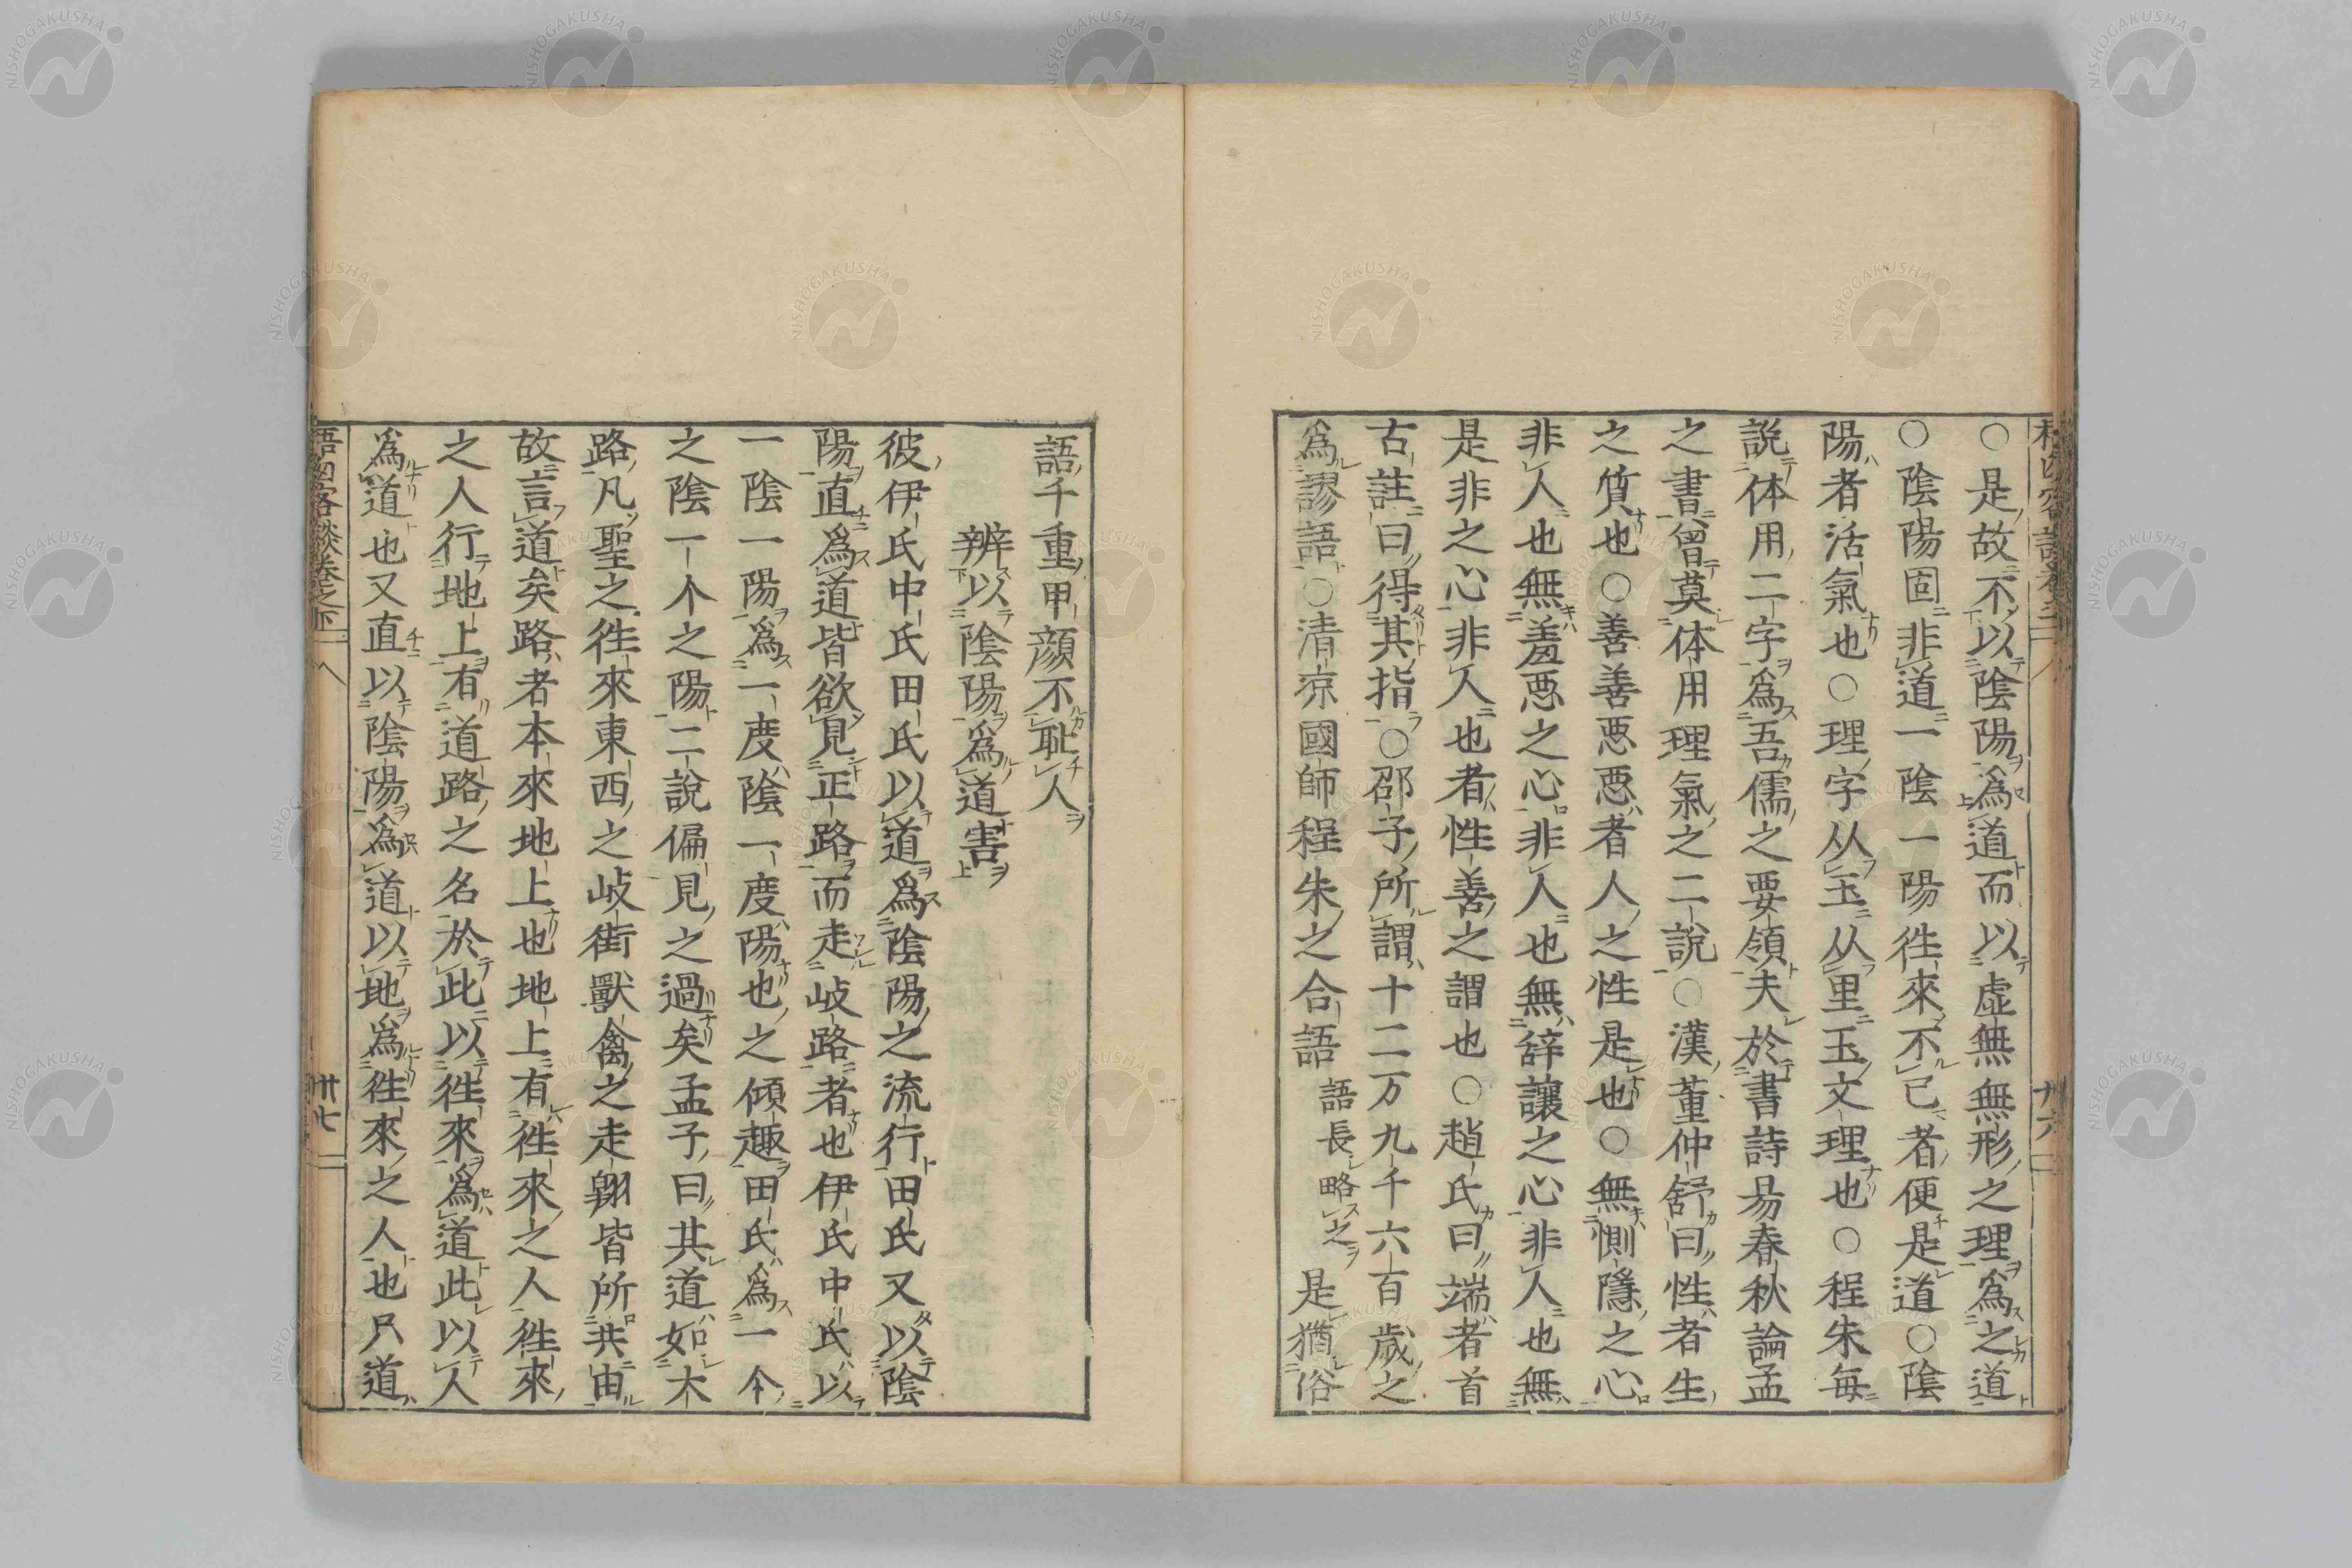 ○是故不以陰陽為道而以虛無無形之理為之道
○陰陽固非道一陰一陽徃來不已者便是道○陰
陽者活氣也○理字从玉从里玉文理也○程朱每
說体用二字為吾儒之要領夫於書詩易春秋論孟
之書曾莫体用理氣之二說○漢董仲舒曰性者生
之質也○善善惡惡者人之性是也○無惻隱之心
非人也無羞惡之心非人也無辭讓之心非人也無
是非之心非人也者性善之謂也○趙氏曰端者首
古註曰得其指○邵子所謂十二万九千六百歲之
為謬語○清凉國師程朱之合語語長略之是猶俗
語千重甲顏不耻人
辨以陰陽為道害
彼伊氏中氏田氏以道為陰陽之流行田氏又以陰
陽直為道皆欲見正路而走岐路者也伊氏中氏以
一陰一陽為一度陰一度陽也之傾趣田氏為一个
之陰一个之陽二說偏見之過矣孟子曰其道如大
路凡聖之徃來東西之岐街獸禽之走翺皆所共由
故言道矣路者本來地上也地上有徃來之人徃來
之人行地上有道路之名於此以徃來為道此以人
為道也又直以陰陽為道以地為徃來之人也只道
卷之下
卅七